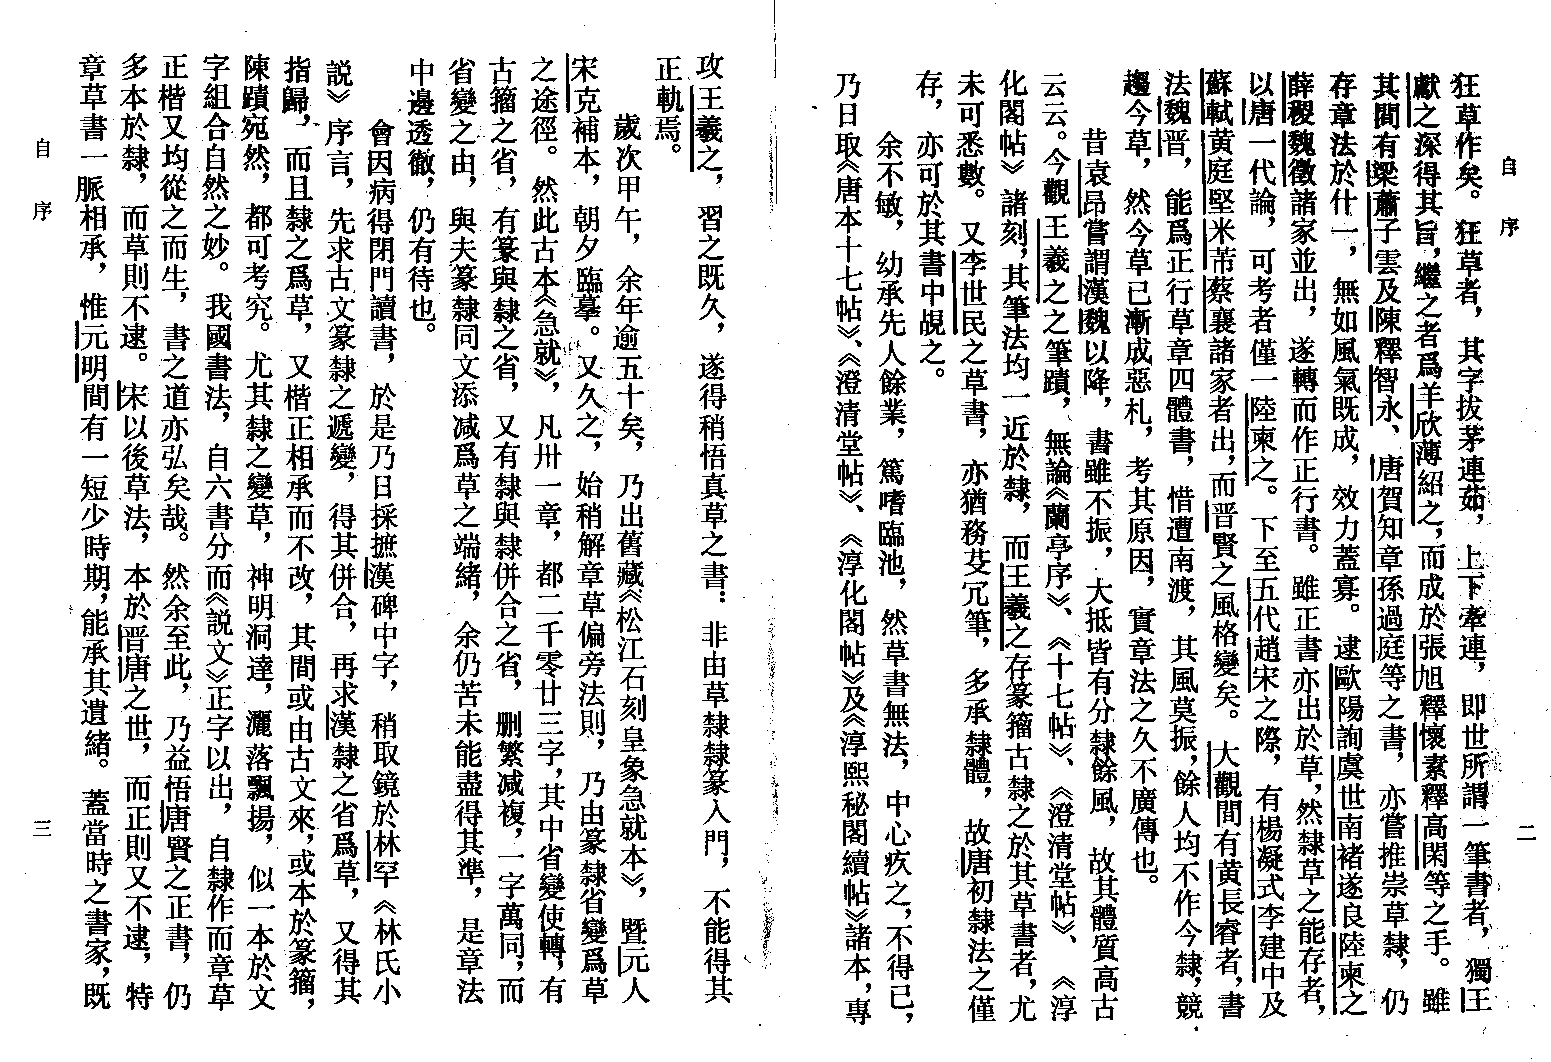 自序
二
狂草作矣。狂草者，其字拔茅連茹，上下牽連，即世所謂一筆書者，獨王
獻之深得其旨，繼之者爲羊欣薄紹之，而成於張旭釋懷素釋高閑等之手。雖
其間有梁蕭子雲及陳釋智永、唐賀知章孫過庭等之書，亦嘗推崇草隸，仍
存章法於什一，無如風氣既成，效力蓋寡。逮歐陽詢虞世南褚遂良陸柬之
薛稷魏徵諸家並出，遂轉而作正行書。雖正書亦出於草，然隸草之能存者，
以唐一代論，可考者僅一陸柬之。下至五代趙宋之際，有楊凝式李建中及
蘇軾黄庭堅米芾蔡襄諸家者出，而晋賢之風格變矣。大觀間有黄長睿者，書
法魏晋，能爲正行草章四體書，惜遭南渡，其風莫振，餘人均不作今隸，競
趨今草，然今草已漸成惡札，考其原因，實章法之久不廣傳也。
昔袁昂嘗謂漢魏以降，書雖不振，大抵皆有分隸餘風，故其體質高古
云云。今觀王羲之之筆蹟，無論《蘭亭序》、《十七帖》、《澄清堂帖》、《淳
化閣帖》諸刻，其筆法均一近於隸，而王羲之存篆籀古隸之於其草書者，尤
未可悉數。又李世民之草書，亦猶務芟冗筆，多承隸體，故唐初隸法之僅
存，亦可於其書中覘之。
余不敏，幼承先人餘業，篤嗜臨池，然草書無法，中心疚之，不得已，
乃日取《唐本十七帖》、《澄清堂帖》、《淳化閣帖》及《淳熙秘閣續帖》諸本，專
攻王羲之，習之既久，遂得稍悟真草之書：非由草隸隸篆入門，不能得其
正軌焉。
歲次甲午，余年逾五十矣，乃出舊藏《松江石刻皇象急就本》，暨元人
宋克補本，朝夕臨摹。又久之，始稍解章草偏旁法則，乃由篆隸省變爲草
之途徑。然此古本《急就》，凡卅一章，都二千零廿三字，其中省變使轉，有
古籀之省，有篆與隸之省，又有隸與隸併合之省，删繁減複，一字萬同，而
省變之由，與夫篆隸同文添減爲草之端緒，余仍苦未能盡得其準，是章法
中邊透徹，仍有待也。
會因病得閉門讀書，於是乃日採摭漢碑中字，稍取鏡於林罕《林氏小
説》序言，先求古文篆隸之遞變，得其併合，再求漢隸之省爲草，又得其
指歸，而且隸之爲草，又楷正相承而不改，其間或由古文來，或本於篆籀，
陳蹟宛然，都可考究。尤其隸之變草，神明洞達，灑落飄揚，似一本於文
字組合自然之妙。我國書法，自六書分而《説文》正字以出，自隸作而章草
正楷又均從之而生，書之道亦弘矣哉。然余至此，乃益悟唐賢之正書，仍
多本於隸，而草則不逮。宋以後草法，本於晋唐之世，而正則又不逮，特
章草書一脈相承，惟元明間有一短少時期，能承其遺緒。蓋當時之書家，既
自序
三